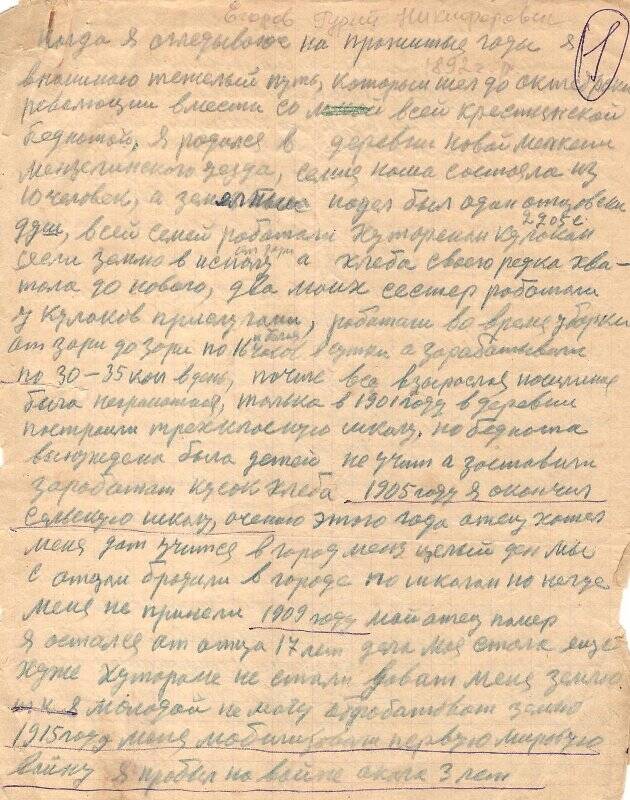 Егоров Гурий Никифорович
1
Когда я огледываюс на прожитые годы я
1892
вспоминаю тежелый путь, которыи шел до октебрски
революции вмести со всей крестиянской
беднотой. Я родился в деревни новой
Мензелинского уезда, семия наша состояла из
10 человек, а надел был один отцовски
2205 с
душ, всей семей работали Хуторенам кулокам
сеели землю в исполу а хлеба своего редка хва-
от зари
тала до нового, два моих сестер работали
у кулоков прислугами, работали во время уборки
от зари до зари по 16 часов в сутки а зарабатывали
и более
по 30-35 коп в день, почти все взырослоя населиние
была неграмотная, толька в 1901 году в деревни
построили трехкласную школу, но беднота
вынуждена была детей не учит а заставили
заработат кусок хлеба 1905 году я окончил
селскую школу, осению этого года отец хотел
меня дат учится в город меня целый ден мы
с отцом бродили в городе по школам но негде
меня не принели 1909 году мой отец помер
я остался от отца 17 лет дела моя стала еще
хуже Хутораме не стали доват меня землю
т к я молодой не могу отработоват землю
1915 году меня мобилизовали первую мировую
войну я пробыл на войне окала 3 лет